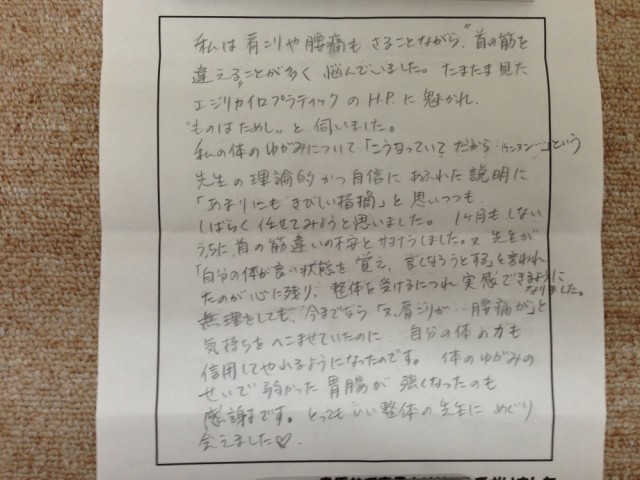 私は肩こりや腰痛もさることながら、首の筋を
違えることが多く悩んでいました。たまたま見た
エジリカイロプラティックのH.P.に魅かれ、
"ものはためし"と伺いました。
私の体のゆがみについて「こうなっていてだから…ウンヌン…」という
先生の理論的かつ自信にあふれた説明に
「あまりにもきびしい指摘」と思いつつも
しばらく任せてみようと思いました。1ヶ月もしない
うちに首の筋違いの不安とサヨナラしました。又、先生が
「自分の体が良い状態を覚え、良くなろうとする」と言われ
たのが心に残り、整体を受けるにつれ実感できるように
なりました。
無理をしても、今までなら「又、肩こりが…腰痛が」と
気持ちをへこませていたのに 自分の体の力も
信用してやれるようになったのです。体のゆがみの
せいで弱かった胃腸が強くなったのも
感謝です。とってもいい整体の先生にめぐり
会えました♡.